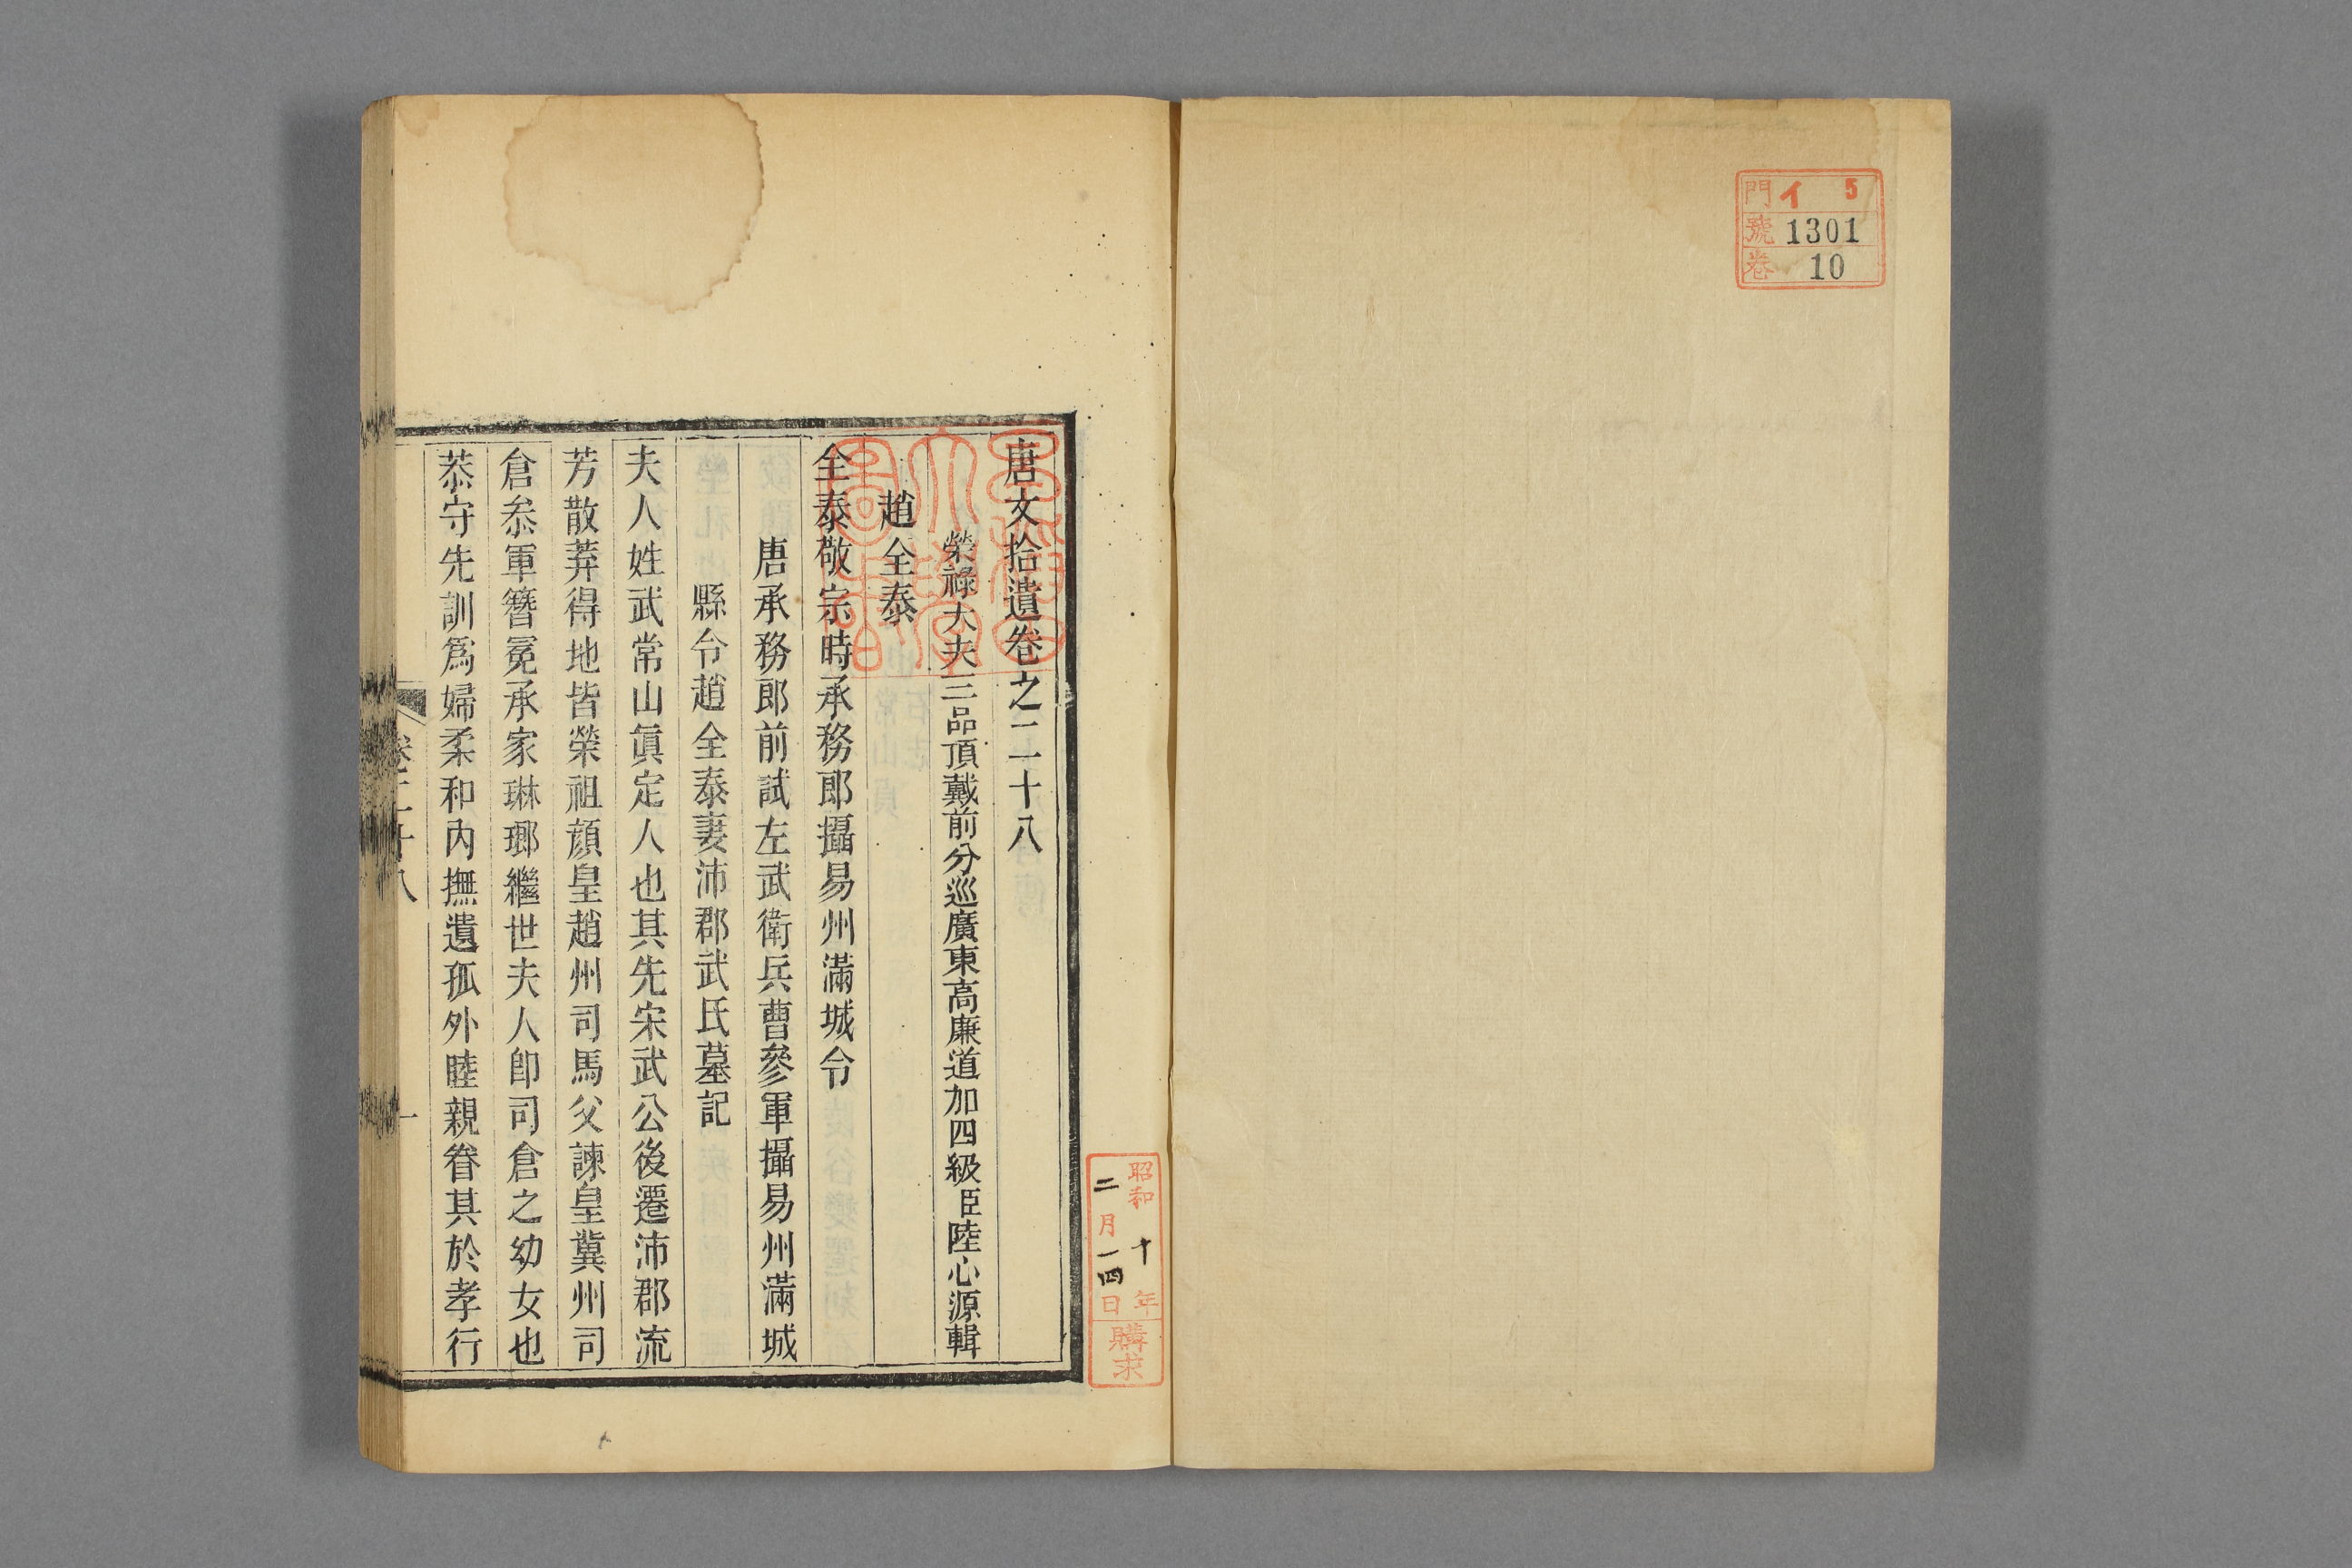 門 イ 5
號 1301
卷 10
昭和十年
二月一四日
購求
唐文拾遺卷之二十八
榮祿大夫三品頂戴前分巡廣東高廉道加四級臣陸心源輯
趙全泰
全泰敬宗時承務郎攝易州滿城令
唐承務郎前試左武衛兵曹參軍攝易州滿城
縣令趙全泰妻沛郡武氏墓記
夫人姓武常山眞定人也其先宋武公後遷沛郡流
芳散葬得地皆榮祖頠皇趙州司馬父諫皇冀州司
倉叅軍簪冕承家琳瑯繼世夫人卽司倉之幼女也
恭守先訓爲婦柔和內撫遺孤外睦親眷其於孝行
卷二十八
一